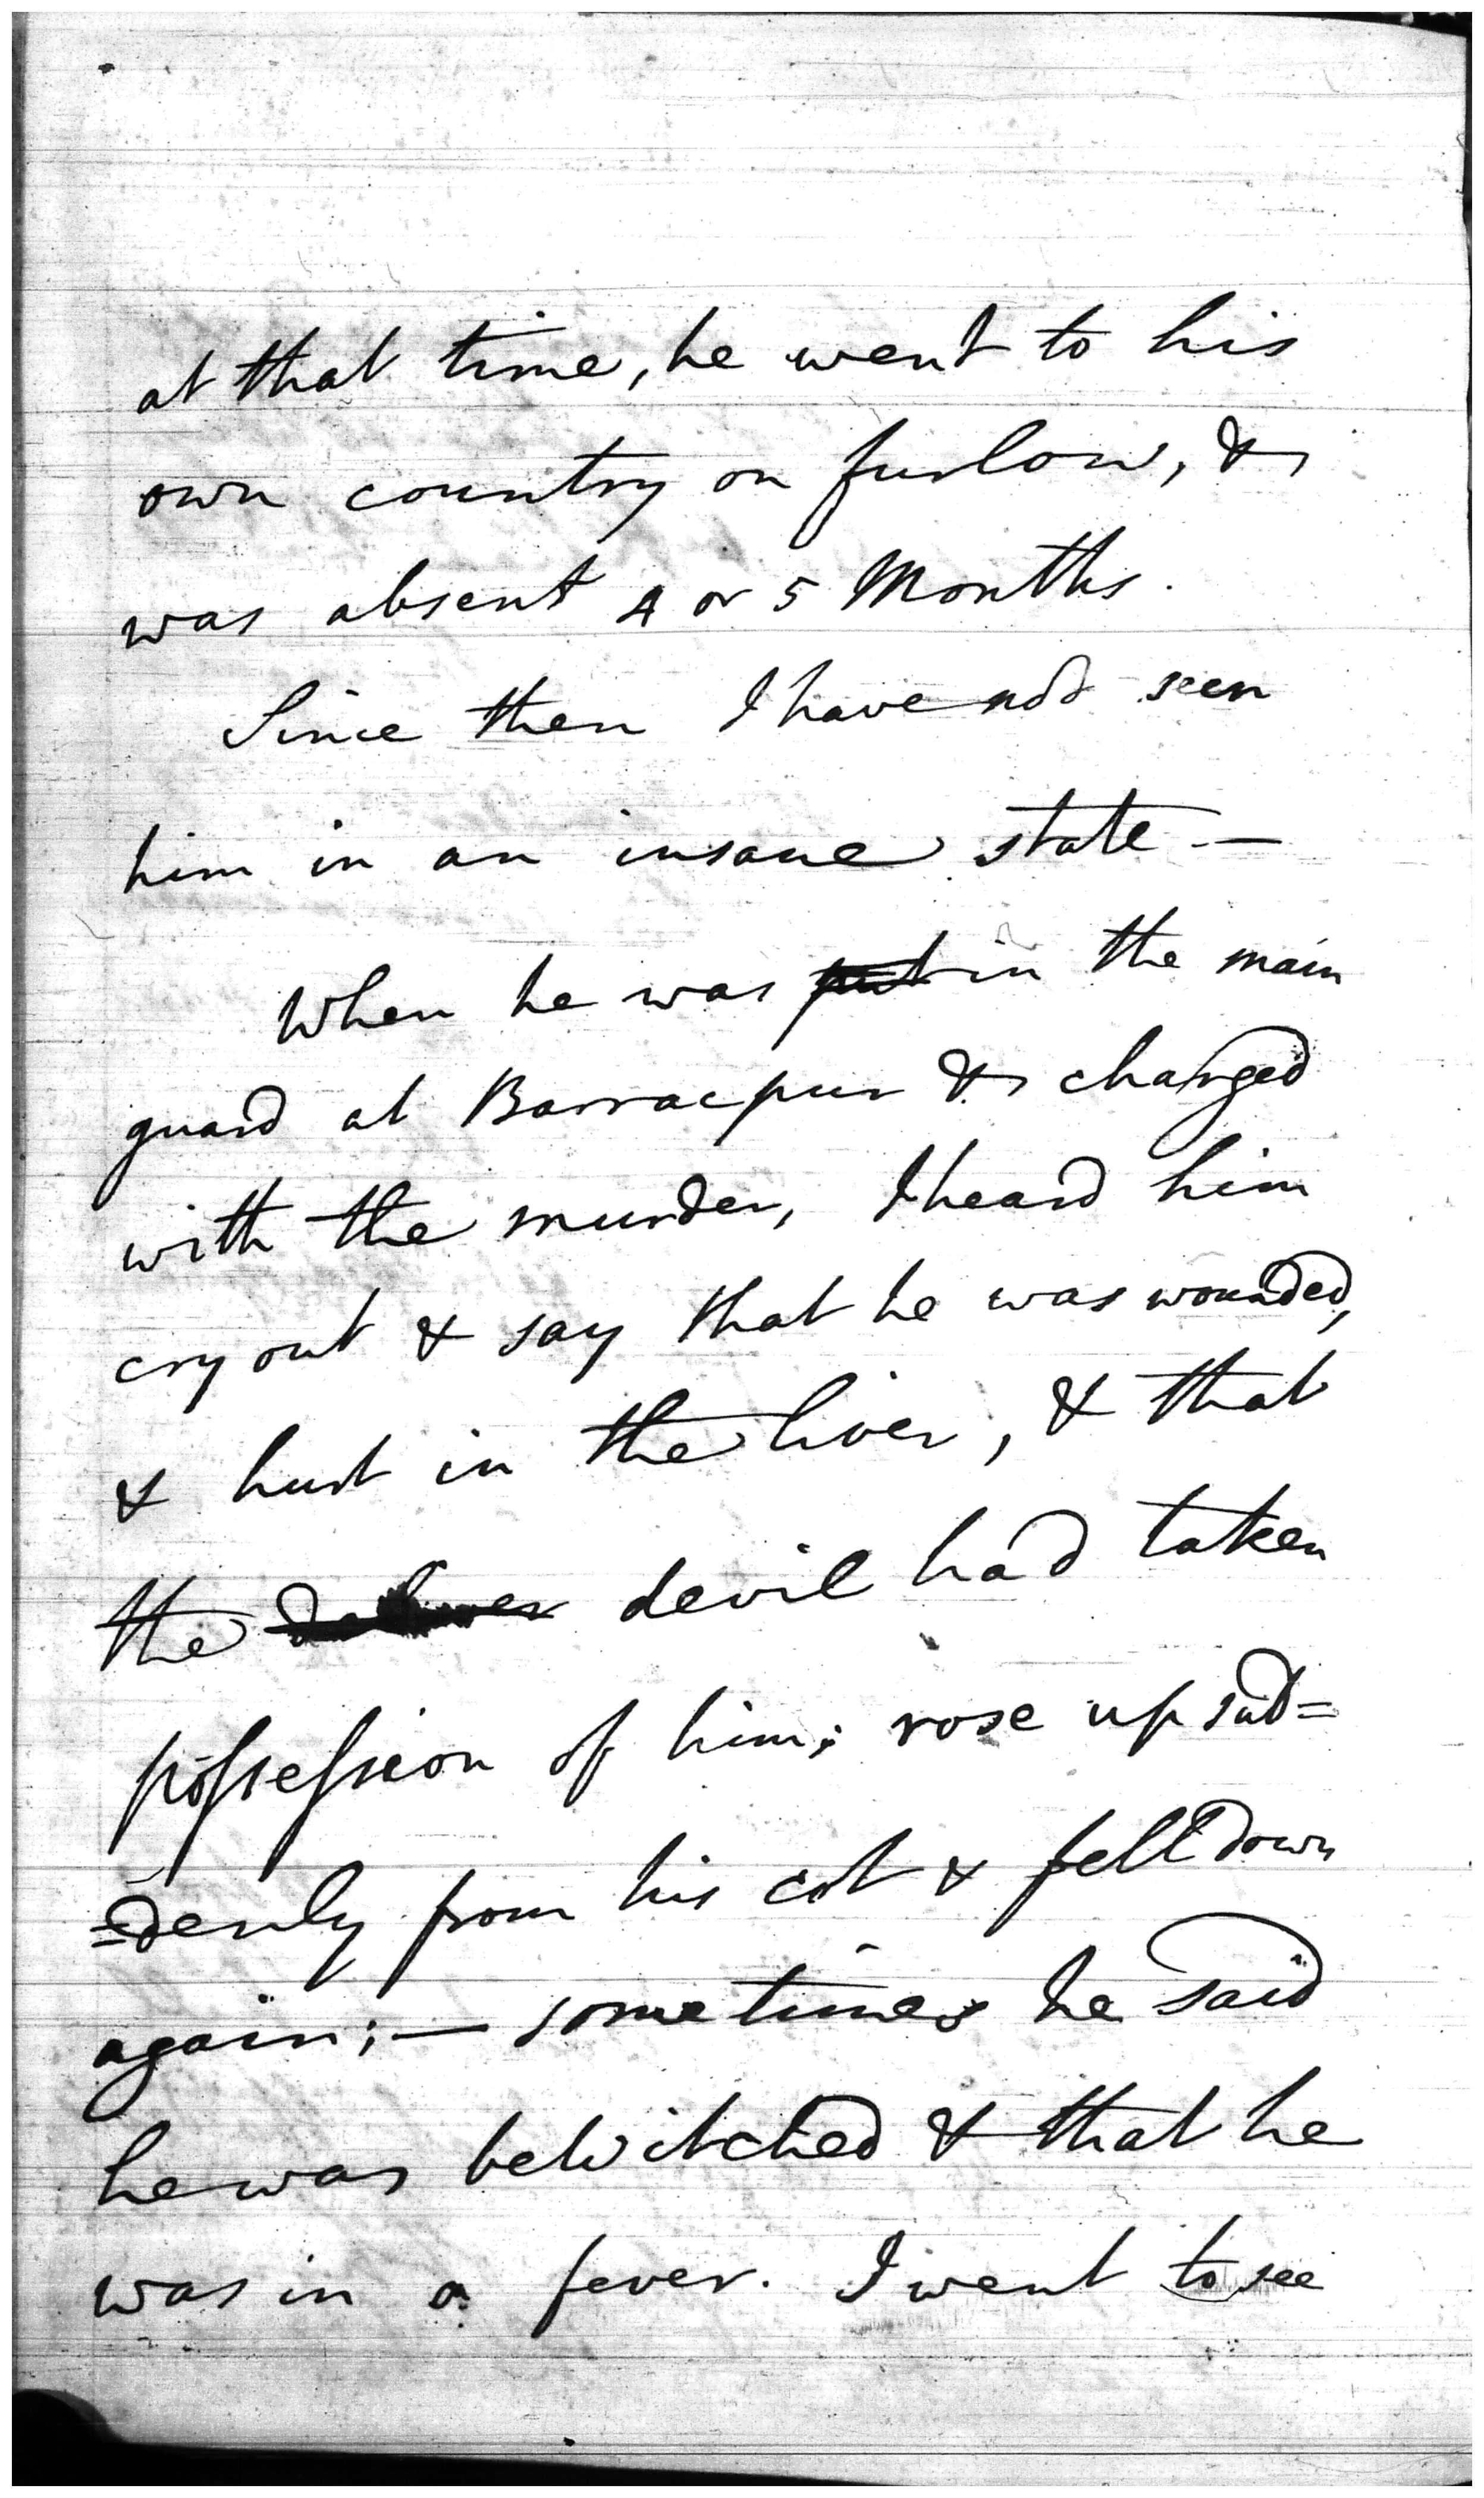 at that time, he went to his
own country on furlow, &
was absent 4 or 5 Months.
Since then I have not seen
him in an insane state —
When he was put in the main
guard at Barracpur & charged
with the murder, I heard him
cry out & say that he was wounded,
& hurt in the liver, & that
the devil had taken
possession of him; rose up sud=
=denly from his cot & fell down
again; — sometimes he said
he was bewitched & that he
was in a fever. I went to see